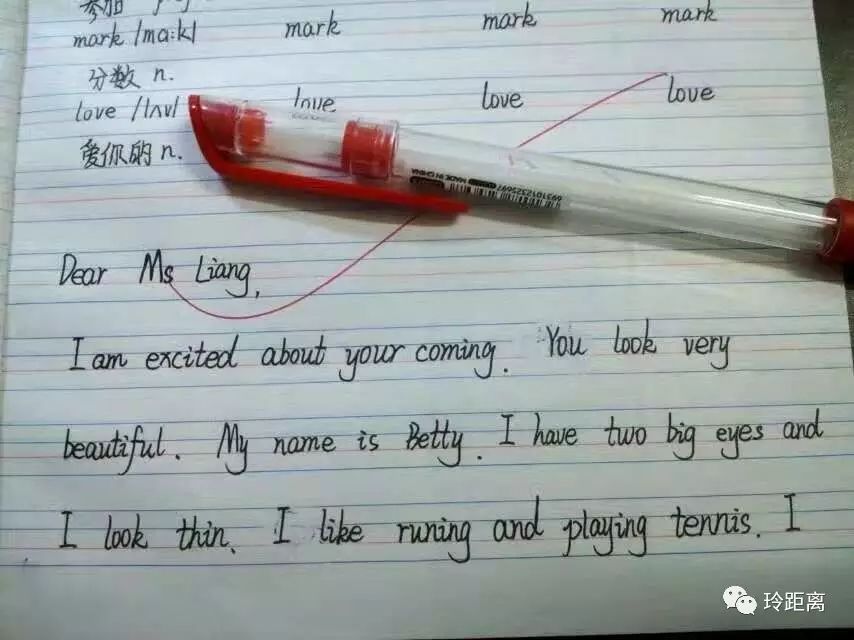 参加
mark /mɑ:k/ mark mark mark
分数 n.
love /lʌv/ love love love
爱你的 n.
6931012325697 MADE IN CHINA
Dear Ms Liang,
I am excited about your coming. You look very
beautiful. My name is Betty. I have two big eyes and
I look thin. I like runing and playing tennis. I
玲距离